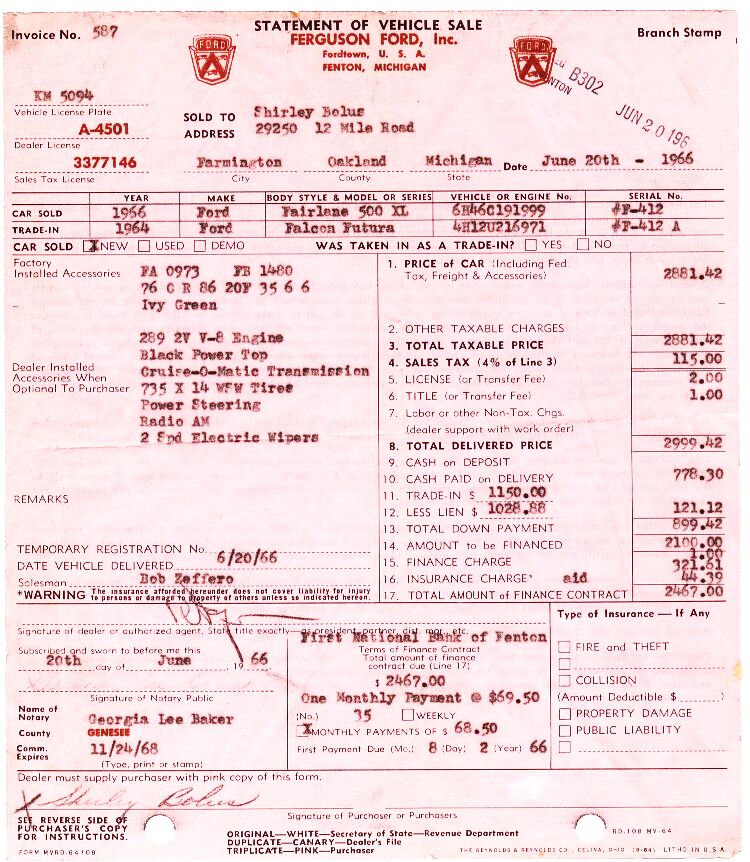 STATEMENT OF VEHICLE SALE
Invoice No. 587
FORD
FERGUSON FORD, Inc.
FORD
Branch Stamp
Fordtown, U. S. A.
FENTON, MICHIGAN
B302
JUN 20 196
KM 5094
Vehicle License Plate
A-4501
Dealer License
3377146
Sales Tax License
SOLD TO Shirley Bolus
ADDRESS 29250 12 Mile Road
Farmington Oakland Michigan Date June 20th - 1966
City County State
YEAR MAKE BODY STYLE & MODEL OR SERIES VEHICLE OR ENGINE No. SERIAL No.
CAR SOLD 1966 Ford Fairlane 500 XL 6H46C191999 #F-412
TRADE-IN 1964 Ford Falcon Futura 4H12U216971 #F-412 A
CAR SOLD X NEW USED DEMO WAS TAKEN IN AS A TRADE-IN? YES NO
Factory
Installed Accessories
FA 0973 FB 1480
76 C R 86 20F 35 6 6
Ivy Green
289 2V V-8 Engine
Black Power Top
Dealer Installed
Accessories When
Optional To Purchaser
Cruise-O-Matic Transmission
735 X 14 WFW Tires
Power Steering
Radio AM
2 Spd Electric Wipers
REMARKS
TEMPORARY REGISTRATION No.
DATE VEHICLE DELIVERED 6/20/66
Salesman Bob Zeffero
*WARNING The insurance afforded hereunder does not cover liability for injury
to persons or damage to property of others unless so indicated hereon.
1. PRICE of CAR (Including Fed.
Tax, Freight & Accessories) 2881.42
2. OTHER TAXABLE CHARGES
3. TOTAL TAXABLE PRICE 2881.42
4. SALES TAX (4% of Line 3) 115.00
5. LICENSE (or Transfer Fee) 2.00
6. TITLE (or Transfer Fee) 1.00
7. Labor or other Non-Tax. Chgs.
(dealer support with work order)
8. TOTAL DELIVERED PRICE 2999.42
9. CASH on DEPOSIT
10. CASH PAID on DELIVERY 778.30
11. TRADE-IN $ 1150.00
12. LESS LIEN $ 1028.88 121.12
13. TOTAL DOWN PAYMENT 899.42
14. AMOUNT to be FINANCED 2100.00
1.00
15. FINANCE CHARGE 321.61
16. INSURANCE CHARGE* aid 44.39
17. TOTAL AMOUNT of FINANCE CONTRACT 2467.00
Signature of dealer or authorized agent. State title exactly—as president, partner, dist. mgr., etc.
Subscribed and sworn to before me this
20th day of June 19 66
Signature of Notary Public
Name of
Notary Georgia Lee Baker
County GENESEE
Comm.
Expires 11/24/68
(Type, print or stamp)
First National Bank of Fenton
Terms of Finance Contract
Total amount of finance
contract due (Line 17)
$ 2467.00
One Monthly Payment @ $69.50
(No.) 35 WEEKLY
X MONTHLY PAYMENTS OF $ 68.50
First Payment Due (Mo.) 8 (Day) 2 (Year) 66
Type of Insurance — If Any
FIRE and THEFT
COLLISION
(Amount Deductible $ )
PROPERTY DAMAGE
PUBLIC LIABILITY
Dealer must supply purchaser with pink copy of this form.
X Shirley Bolus
Signature of Purchaser or Purchasers
SEE REVERSE SIDE OF
PURCHASER'S COPY
FOR INSTRUCTIONS.
FORM MVRD-64108
ORIGINAL—WHITE—Secretary of State—Revenue Department
DUPLICATE—CANARY—Dealer's File
TRIPLICATE—PINK—Purchaser
RD-108 MV-64
THE REYNOLDS & REYNOLDS CO., CELINA, OHIO (8-64) LITHO IN U.S.A.